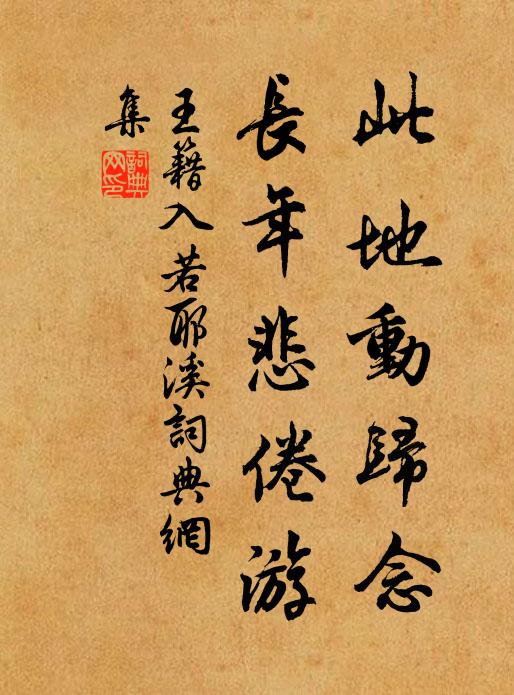 此地動歸念
長年悲倦游
王籍入若耶溪詞典網
集
詞典
网印